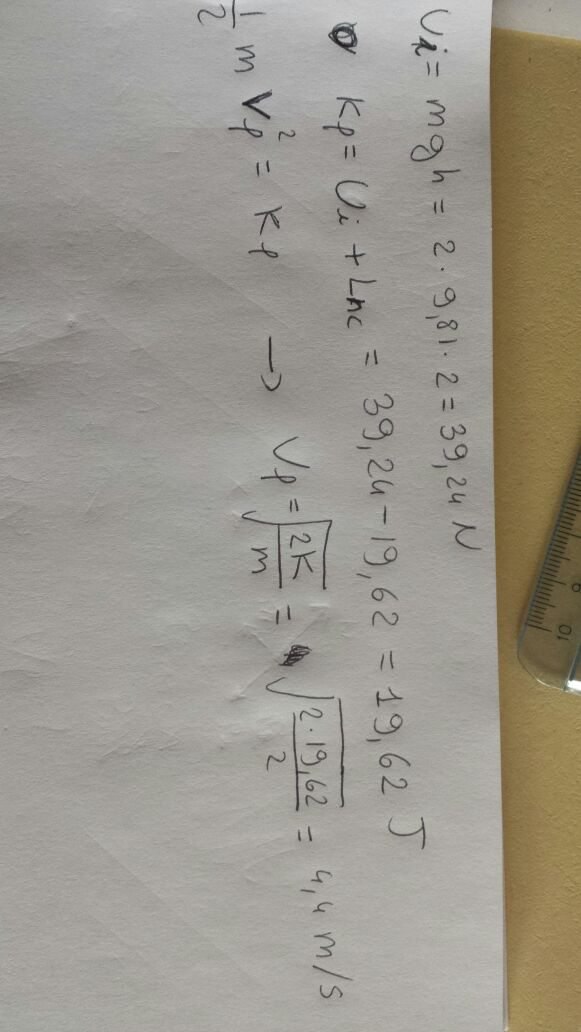 Ui = mgh = 2 · 9,81 · 2 = 39,24 N
Kf = Ui + Lnc = 39,24 - 19,62 = 19,62 J
1/2 m Vf² = Kf → Vf = √(2K/m) = √(2·19,62/2) = 4,4 m/s
10